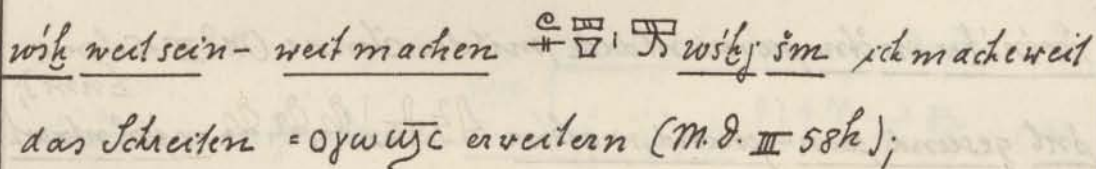 wśḫ weit sein - weit machen wśḫj šm ich mache weit
das Schreiten = ⲟⲩⲱϣⲥ̅ erweitern (M.D. III 58h);